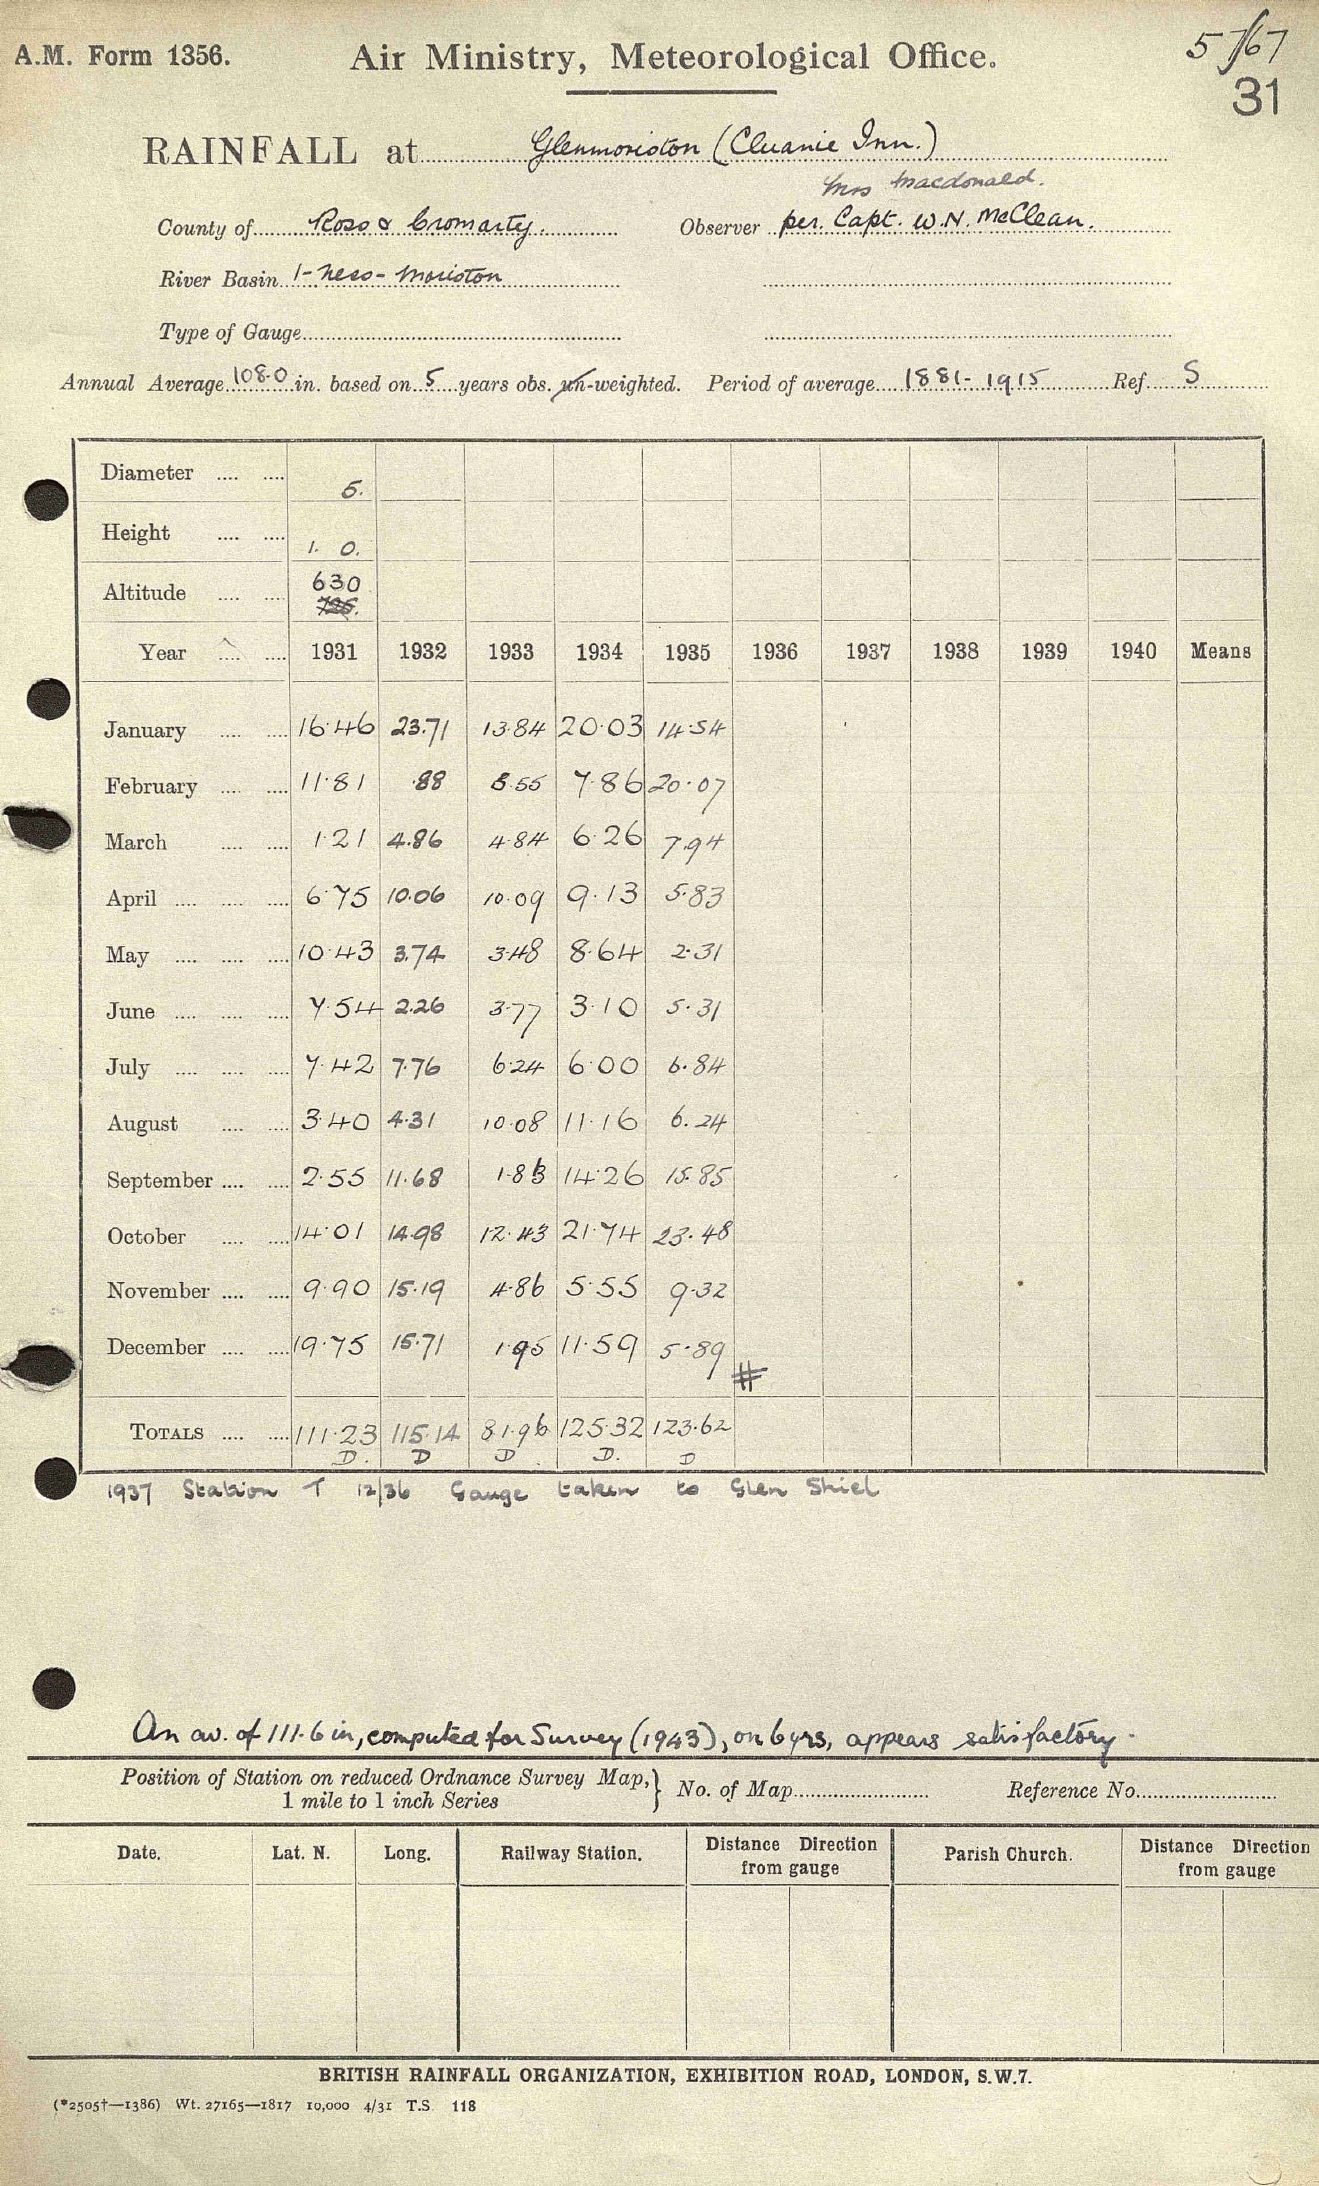 A.M. Form 1356.
Air Ministry, Meteorological Office.
5/67
31
RAINFALL at Glenmoriston (Cluanie Inn.)
Mrs Macdonald.
County of Ross & Cromarty. Observer per. Capt. W.N. McClean.
River Basin 1-Ness-Moriston
Type of Gauge
Annual Average 108.0 in. based on 5 years obs. un-weighted. Period of average 1881-1915 Ref. S
Diameter .... .... 5.
Height .... .... 1. 0.
Altitude .... .... 630
725.
Year .... .... 1931 1932 1933 1934 1935 1936 1937 1938 1939 1940 Means
January .... .... 16.46 23.71 13.84 20.03 14.54
February .... .... 11.81 .88 8.55 7.86 20.07
March .... .... 1.21 4.86 4.84 6.26 7.94
April .... .... .... 6.75 10.06 10.09 9.13 5.83
May .... .... .... 10.43 3.74 3.48 8.64 2.31
June .... .... .... 7.54 2.26 3.77 3.10 5.31
July .... .... .... 7.42 7.76 6.24 6.00 6.84
August .... .... 3.40 4.31 10.08 11.16 6.24
September .... .... 2.55 11.68 1.83 14.26 15.85
October .... .... 14.01 14.98 12.43 21.74 23.48
November .... .... 9.90 15.19 4.86 5.55 9.32
December .... .... 19.75 15.71 1.95 11.59 5.89
#
TOTALS .... .... 111.23 115.14 81.96 125.32 123.62
D. D D. D. D
1937 Station T 12/36 Gauge taken to Glen Shiel
An av. of 111.6 in, computed for Survey (1943), on 6 yrs, appears satisfactory.
Position of Station on reduced Ordnance Survey Map, } No. of Map Reference No.
1 mile to 1 inch Series
Date. Lat. N. Long. Railway Station. Distance Direction from gauge Parish Church. Distance Direction from gauge
BRITISH RAINFALL ORGANIZATION, EXHIBITION ROAD, LONDON, S.W.7.
(*2505†—1386) Wt. 27165—1817 10,000 4/31 T.S. 118